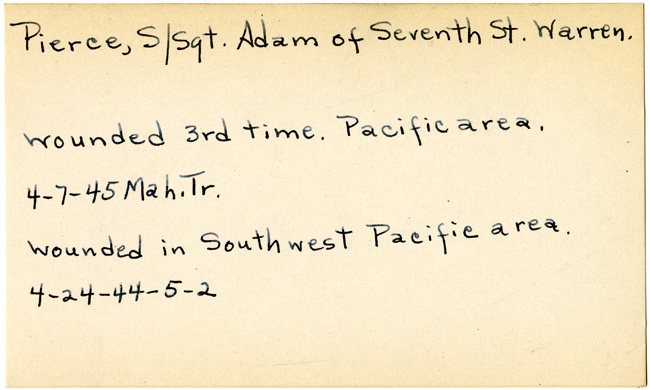 Pierce, S/Sgt. Adam of Seventh St. Warren.
wounded 3rd time. Pacific area.
4-7-45 Mah. Tr.
wounded in Southwest Pacific area.
4-24-44-5-2